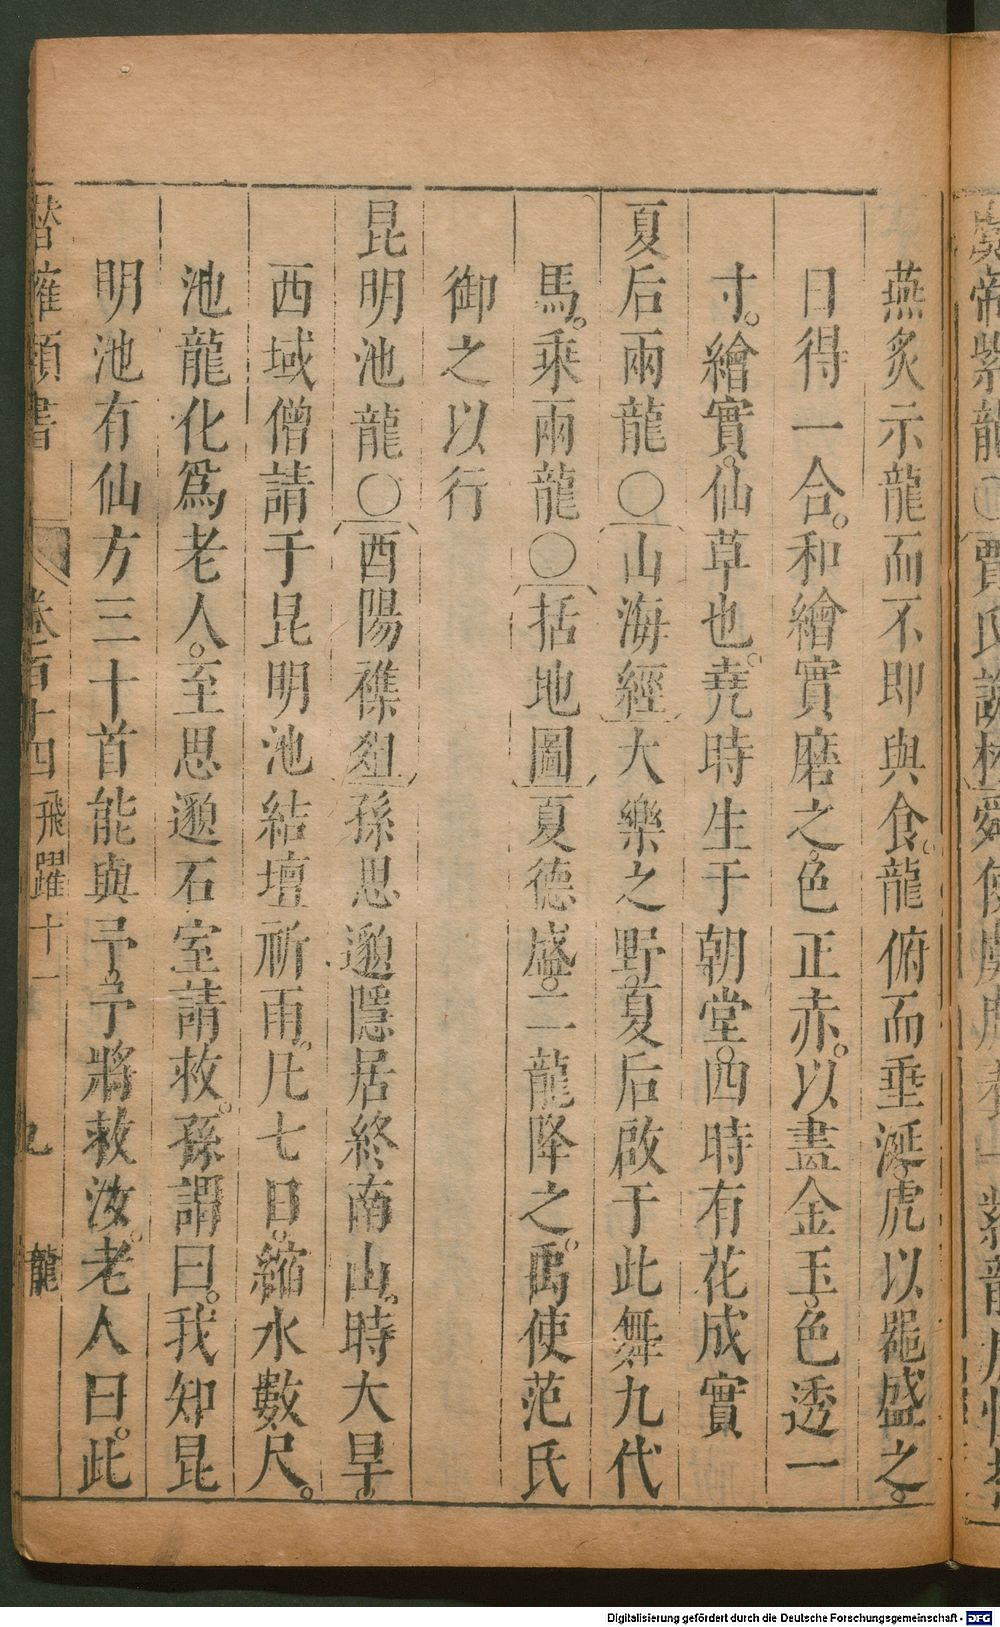 燕炙示龍而不即與食。龍俯而垂涎。虎以器盛之。
日得一合。和繪實磨之。色正赤。以畫金玉。色透一
寸。繪實。仙草也。堯時生于朝堂。四時有花成實
夏后兩龍〇山海經大樂之野。夏后啟于此舞九代
馬。乘兩龍〇括地圖夏德盛。二龍降之。禹使范氏
御之以行
昆明池龍〇酉陽襍俎孫思邈隱居終南山。時大旱。
西域僧請于昆明池結壇祈雨。凡七日。縮水數尺。
池龍化爲老人。至思邈石室請救。孫謂曰。我知昆
明池有仙方三十首能與予。予將救汝。老人曰。此
潛確類書 卷百十四 飛躍十一 九 龍
Digitalisierung gefördert durch die Deutsche Forschungsgemeinschaft - DFG